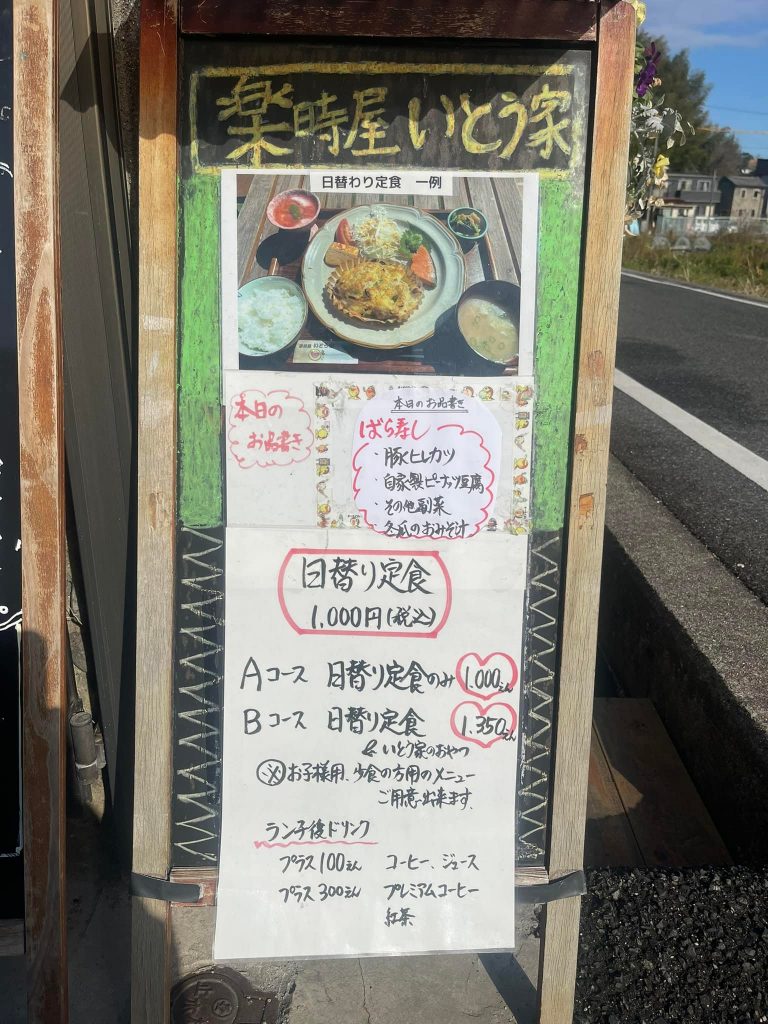 楽時屋 いとう家
日替わり定食 一例
本日の
お品書き
本日のお品書き
ばら寿し
・豚ヒレカツ
・自家製ピーナッツ豆腐
・その他副菜
・冬瓜のおみそ汁
日替り定食
1,000円(税込)
Aコース 日替り定食のみ 1.000えん
Bコース 日替り定食 1.350えん
& いとう家のおやつ
※お子様用、少食の方用のメニュー
ご用意出来ます。
ランチ後ドリンク
プラス100えん コーヒー、ジュース
プラス300えん プレミアムコーヒー
紅茶